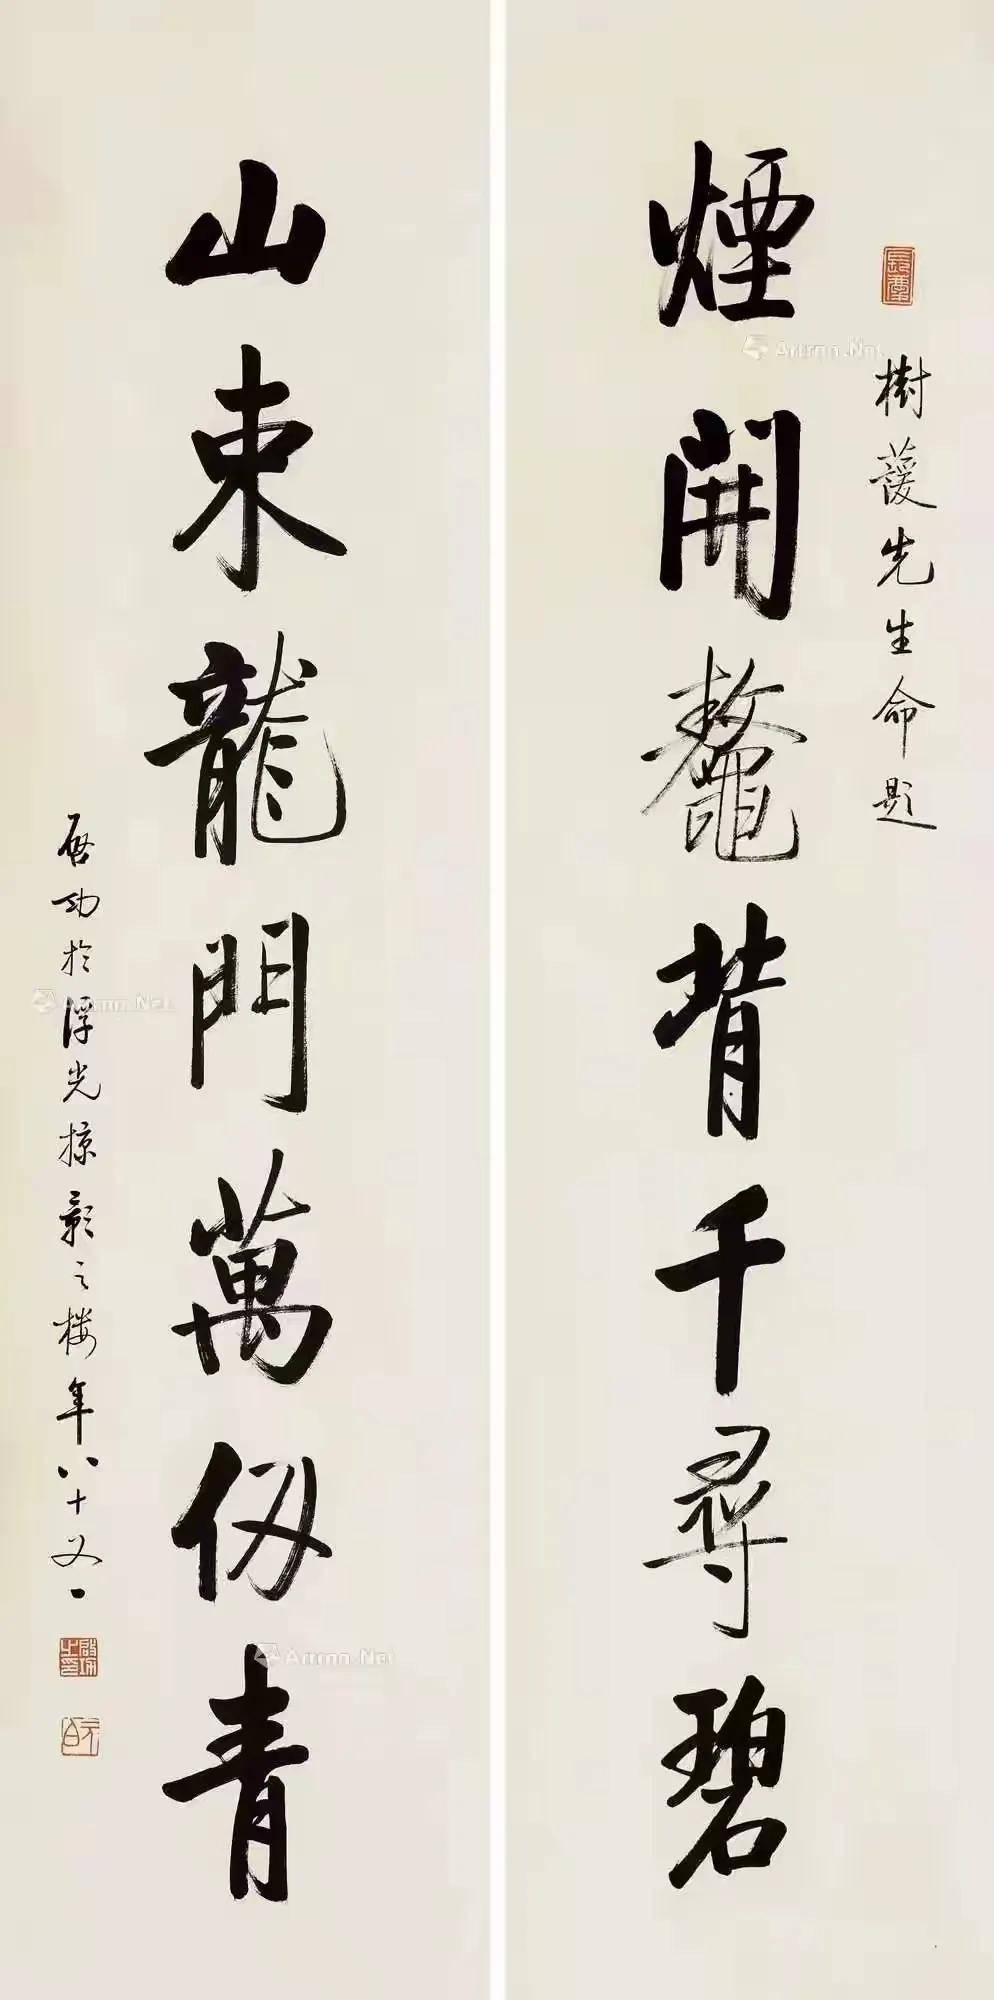 樹蕿先生命題
煙開鼇背千尋碧
山束龍門萬仞青
启功於浮光掠影之楼年八十又一
启功之印
元白
Artron.Net
Artron.Net
Artron.Net